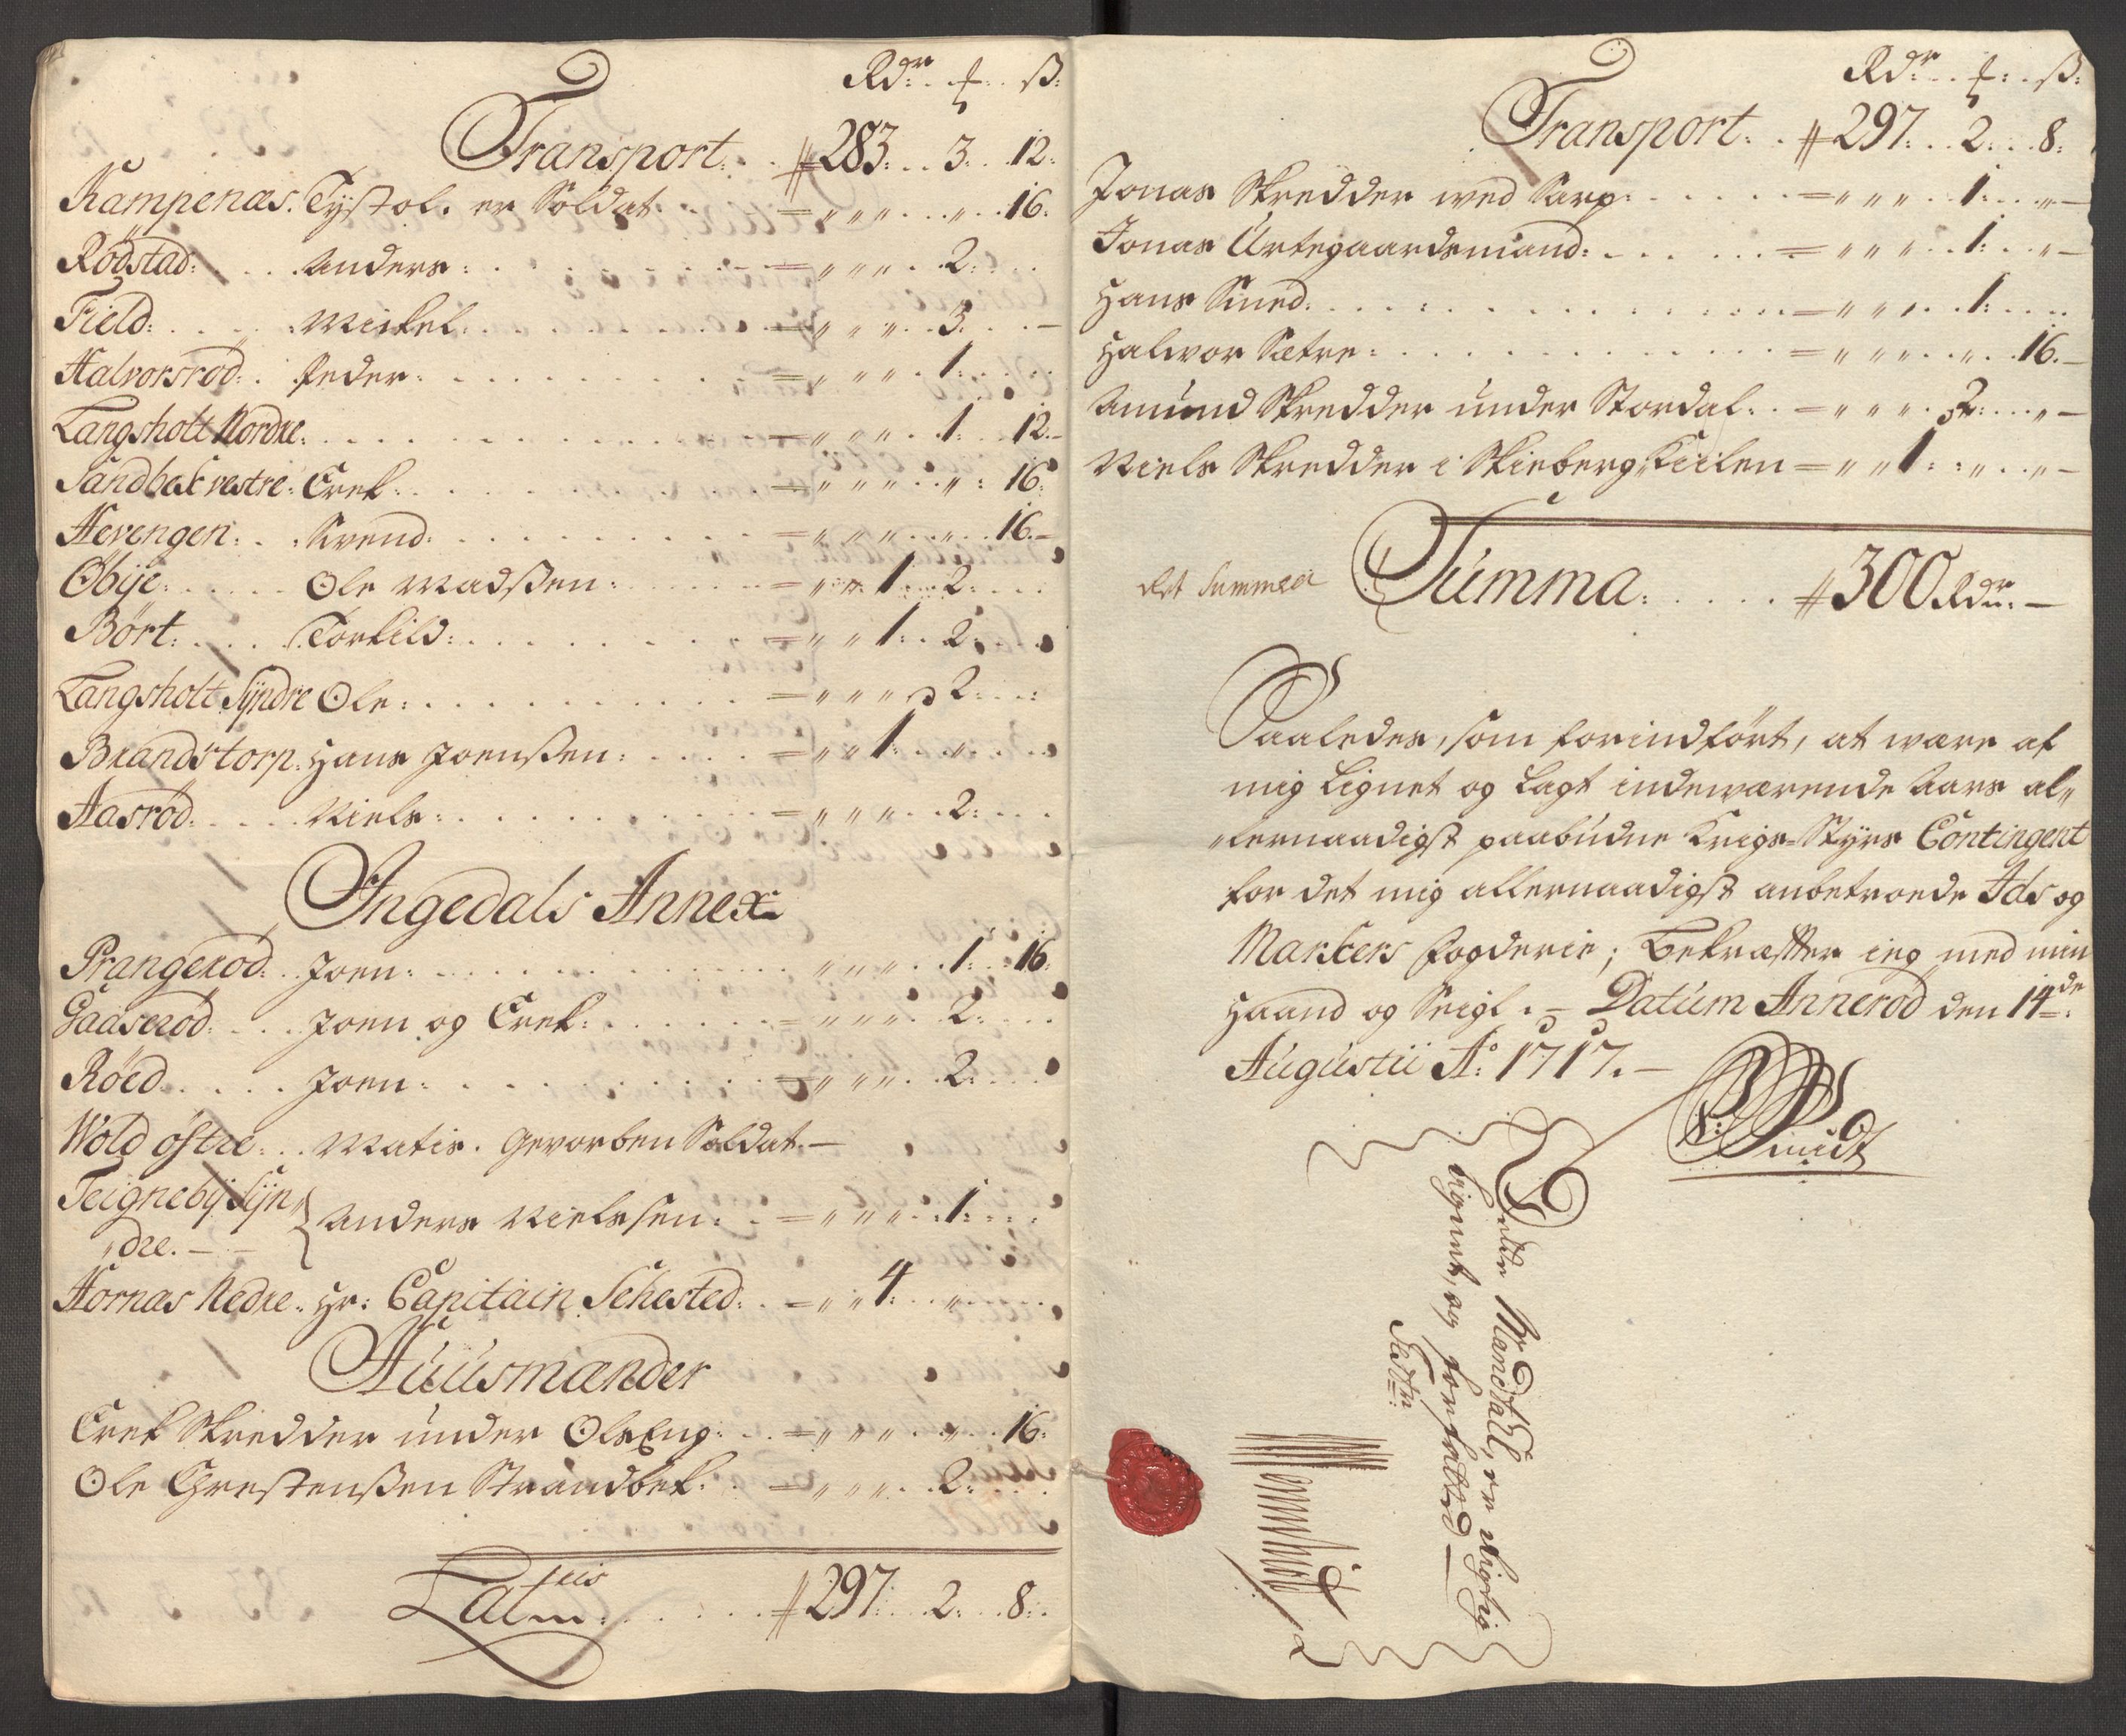 Rdr: ƒ: ß:
Transport: 283: 3: 12:
Kampenæs. Tÿstol. er Soldat: 16:
Rödstad: Anders: 2:
Field: Mickel: 3:
Halvorsröd: Peder: 1:
Langsholt Nordre: 1: 12:
Sandbæk vestre: Erek: 16:
Hevengen: Svend: 16:
Öbÿe: Ole Madßen: 1: 2:
Bört: Torkild: 1: 2:
Langsholt Sÿndre Ole: 2:
Brandstorp: Hans Joenßen: 1:
Aasröd: Niels: 2:
Ingedals Annex
Prangeröd: Joen: 1: 16:
Gaaseröd: Joen og Erek: 2:
Röed Joen: 2:
Wold östre: Matis. Gevorben Soldat.
Teignebÿ Sÿn„
„dre. Anders Nielssen: 1:
Hornæs Nedre: Hr: Capitain Sehested: 4
Huusmænder
Erek Skredder under OlsEng: 16:
Ole Chrestenßen Strandbek: 2:
Lateris 297: 2: 8:
Rdr: ƒ: ß:
Transport: 297: 2: 8:
Jonas Skredder wed Sarp: 1:
Jonas Urtegaardsmand: 1:
Hans Smed: 1:
Halvor Sætre: 16.
Amund Skredder under Stordal: 2:
Niels Skredder i Skieberg Kiilen 1:
Ret Summea Summa: 300 Rdr:
Saaledes, som forindfört, at være af
mig Lignet og Lagt indeværende Aars al„
„lernaadigst paabudne Krigs-Stÿrs Contingent
for det mig allernaadigst anbetroede Ids og
Markers Fogderie; Bekræfter ieg med min
Haand og Seigl. Datum Anneröd den 14de:
Augustii Ao: 1717.
Smidt
Dette Mandtall, er Rigtig
Lignet, og forfatted